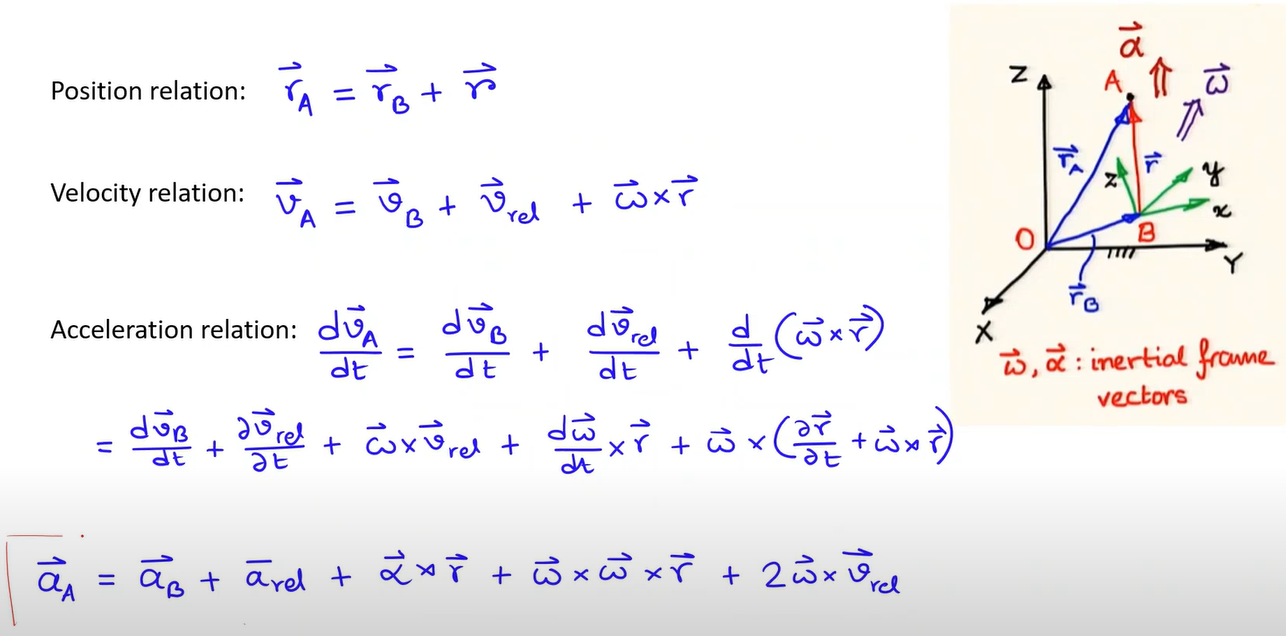 Position relation: r⃗_A = r⃗_B + r⃗
Velocity relation: v⃗_A = v⃗_B + v⃗_rel + ω⃗ × r⃗
Acceleration relation: dv⃗_A/dt = dv⃗_B/dt + dv⃗_rel/dt + d/dt (ω⃗ × r⃗)
= dv⃗_B/dt + ∂v⃗_rel/∂t + ω⃗ × v⃗_rel + dω⃗/dt × r⃗ + ω⃗ × (∂r⃗/∂t + ω⃗ × r⃗)
a⃗_A = a⃗_B + a̅_rel + α⃗ × r⃗ + ω⃗ × ω⃗ × r⃗ + 2ω⃗ × v⃗_rel
α⃗
Z A ω⃗
r⃗_A r⃗ z y
x
O B
Y
r⃗_B
X
ω⃗, α⃗ : inertial frame
vectors